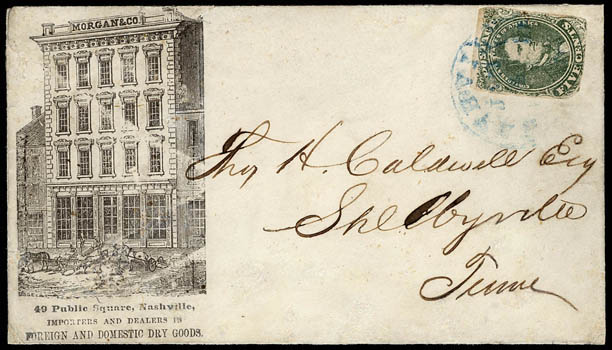 MORGAN & CO.
FIVE CENTS
Thos H. Caldwell Esq
Shelbyville
Tenn
49 Public Square, Nashville,
IMPORTERS AND DEALERS IN
FOREIGN AND DOMESTIC DRY GOODS.